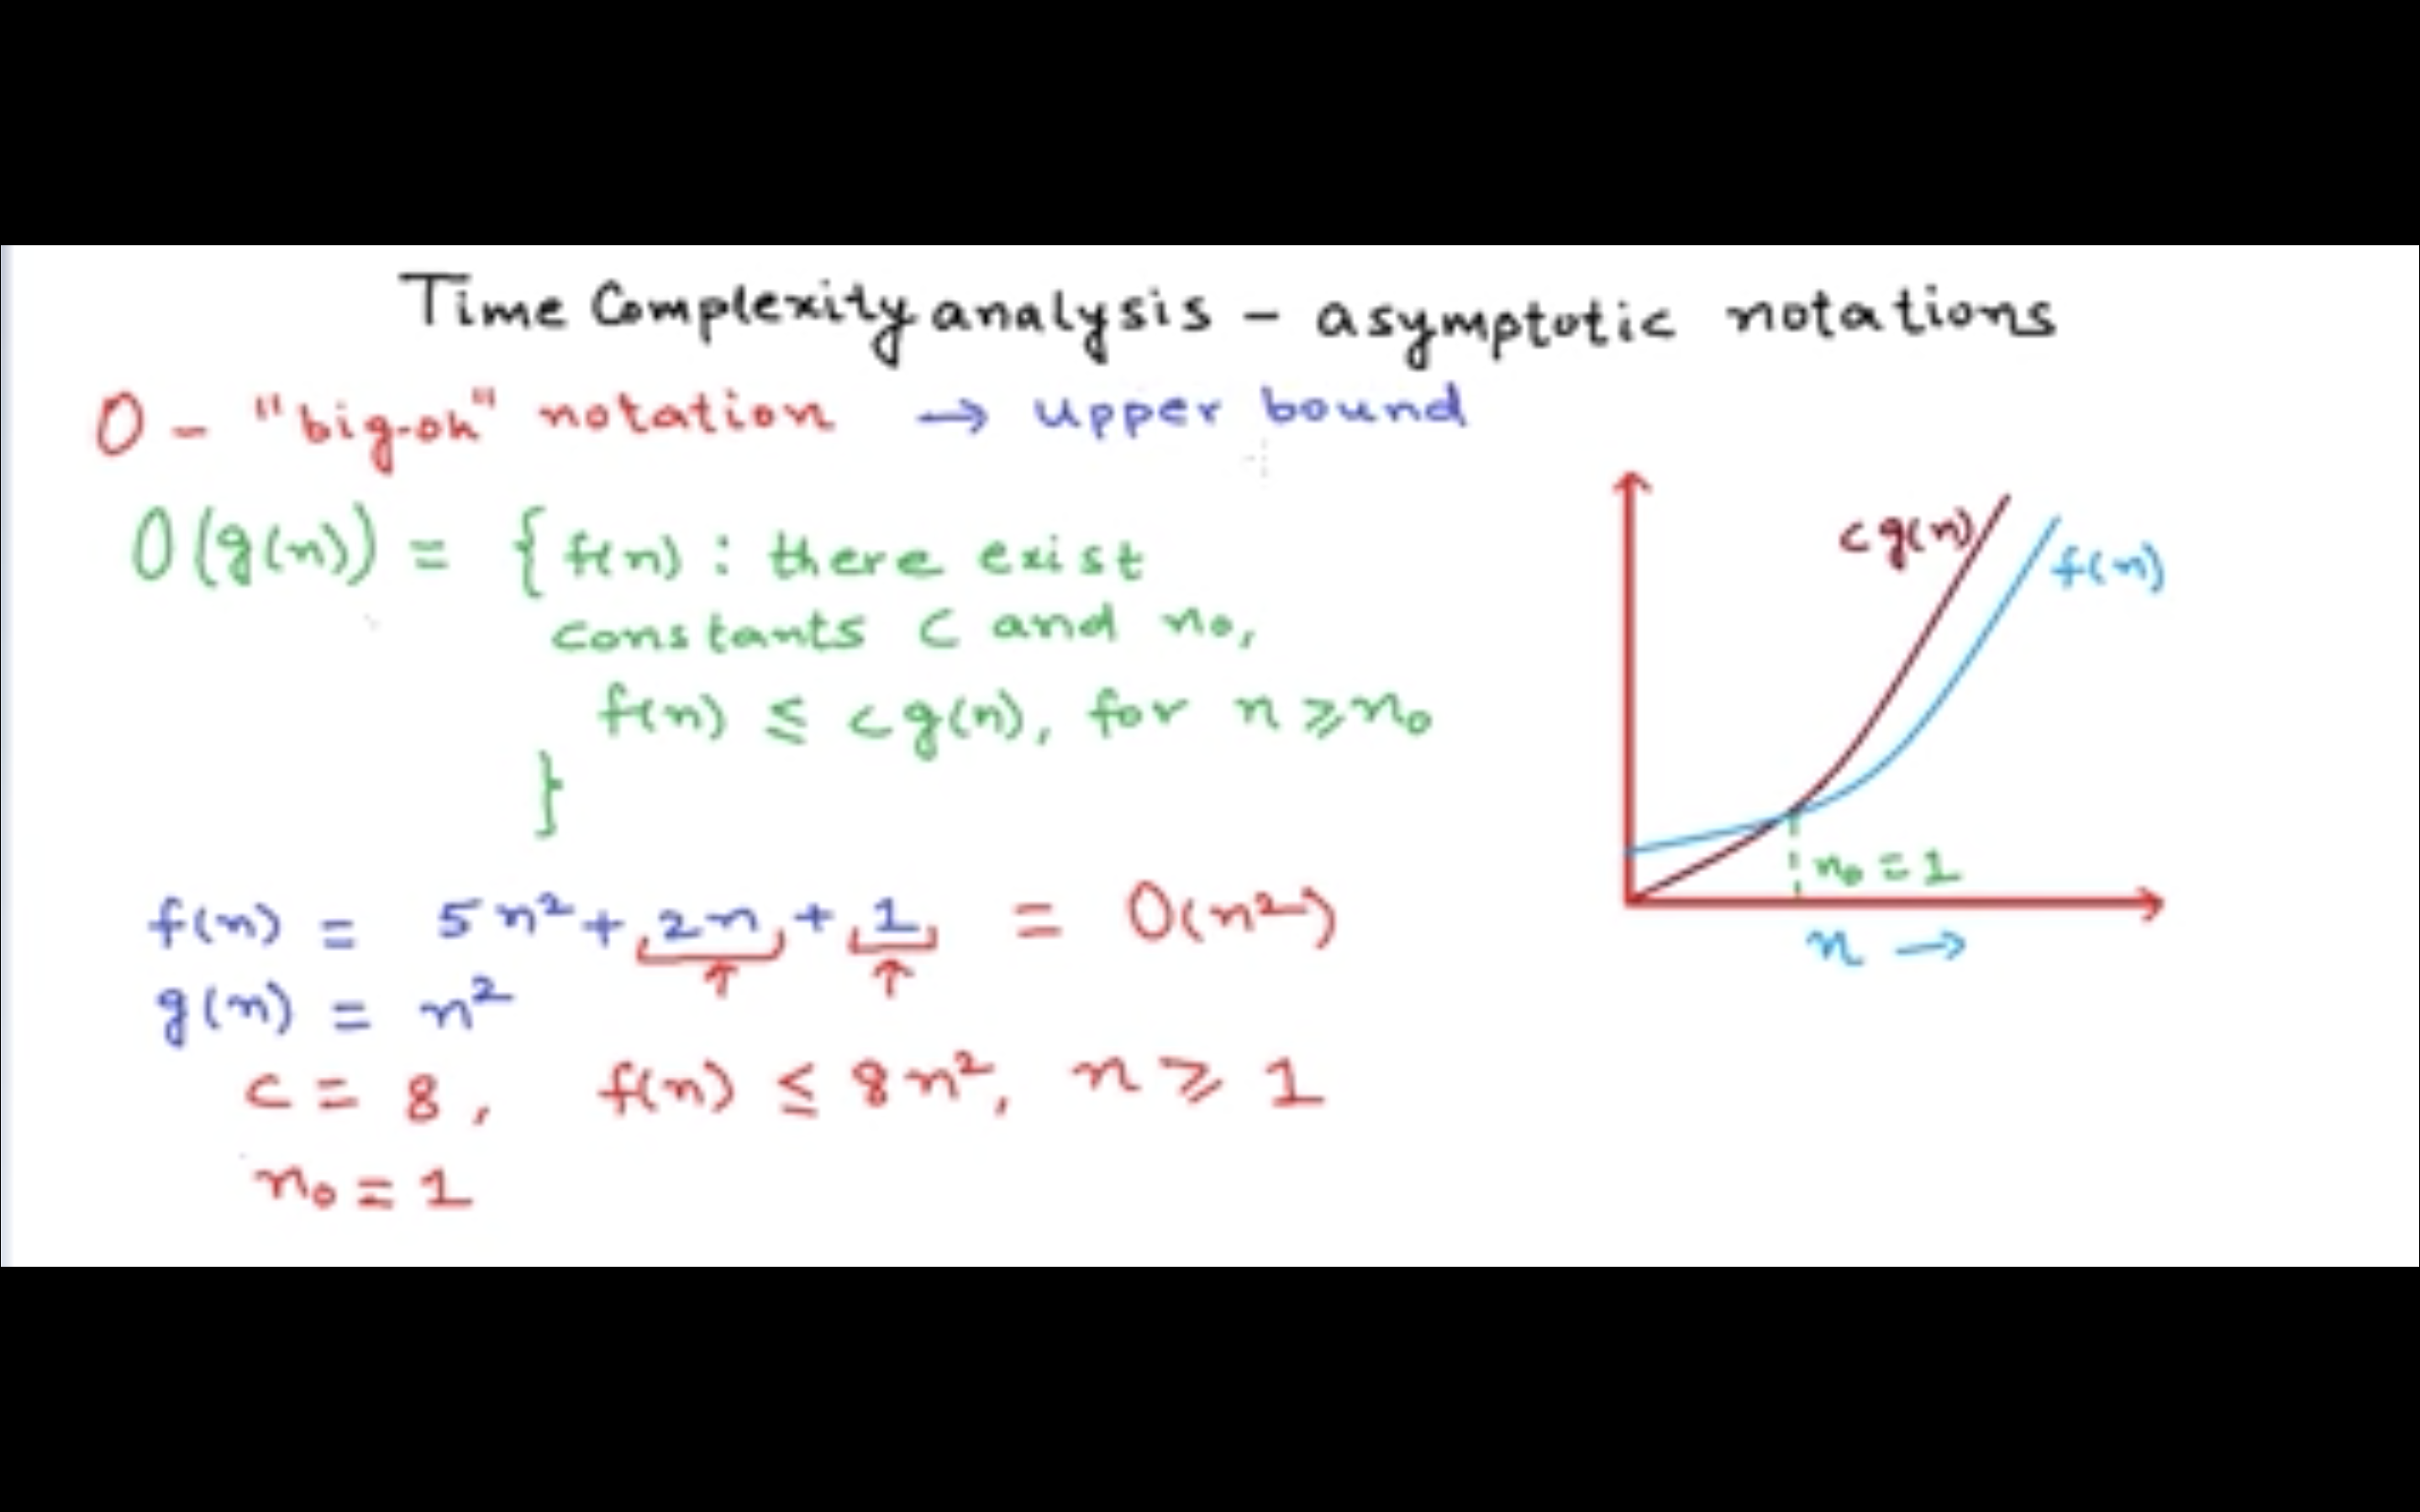 Time Complexity analysis - asymptotic notations
O - "big-oh" notation → upper bound
O(g(n)) = { f(n) : there exist
constants c and n₀,
f(n) ≤ cg(n), for n ≥ n₀
}
f(n) = 5n² + 2n + 1 = O(n²)
g(n) = n²
c = 8, f(n) ≤ 8n², n ≥ 1
n₀ = 1
cg(n)
f(n)
n₀ = 1
n →